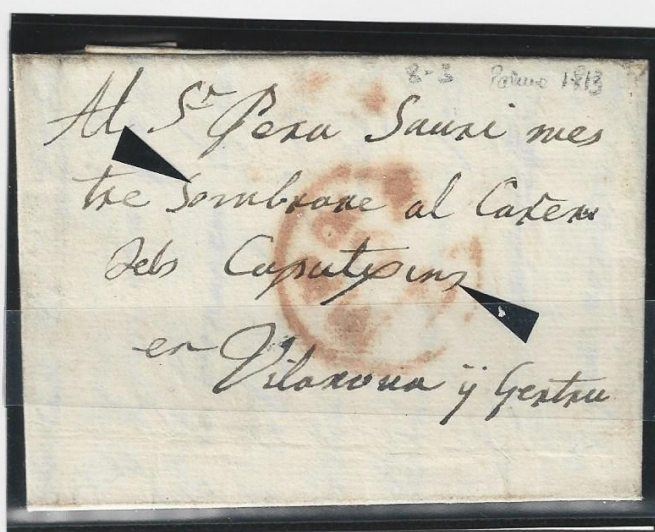 8-3 Palma 1813
Al Sr Pera Sauri mes
tre Sombrare al Carere
dels Caputxins
en Vilanova ÿ Gertru